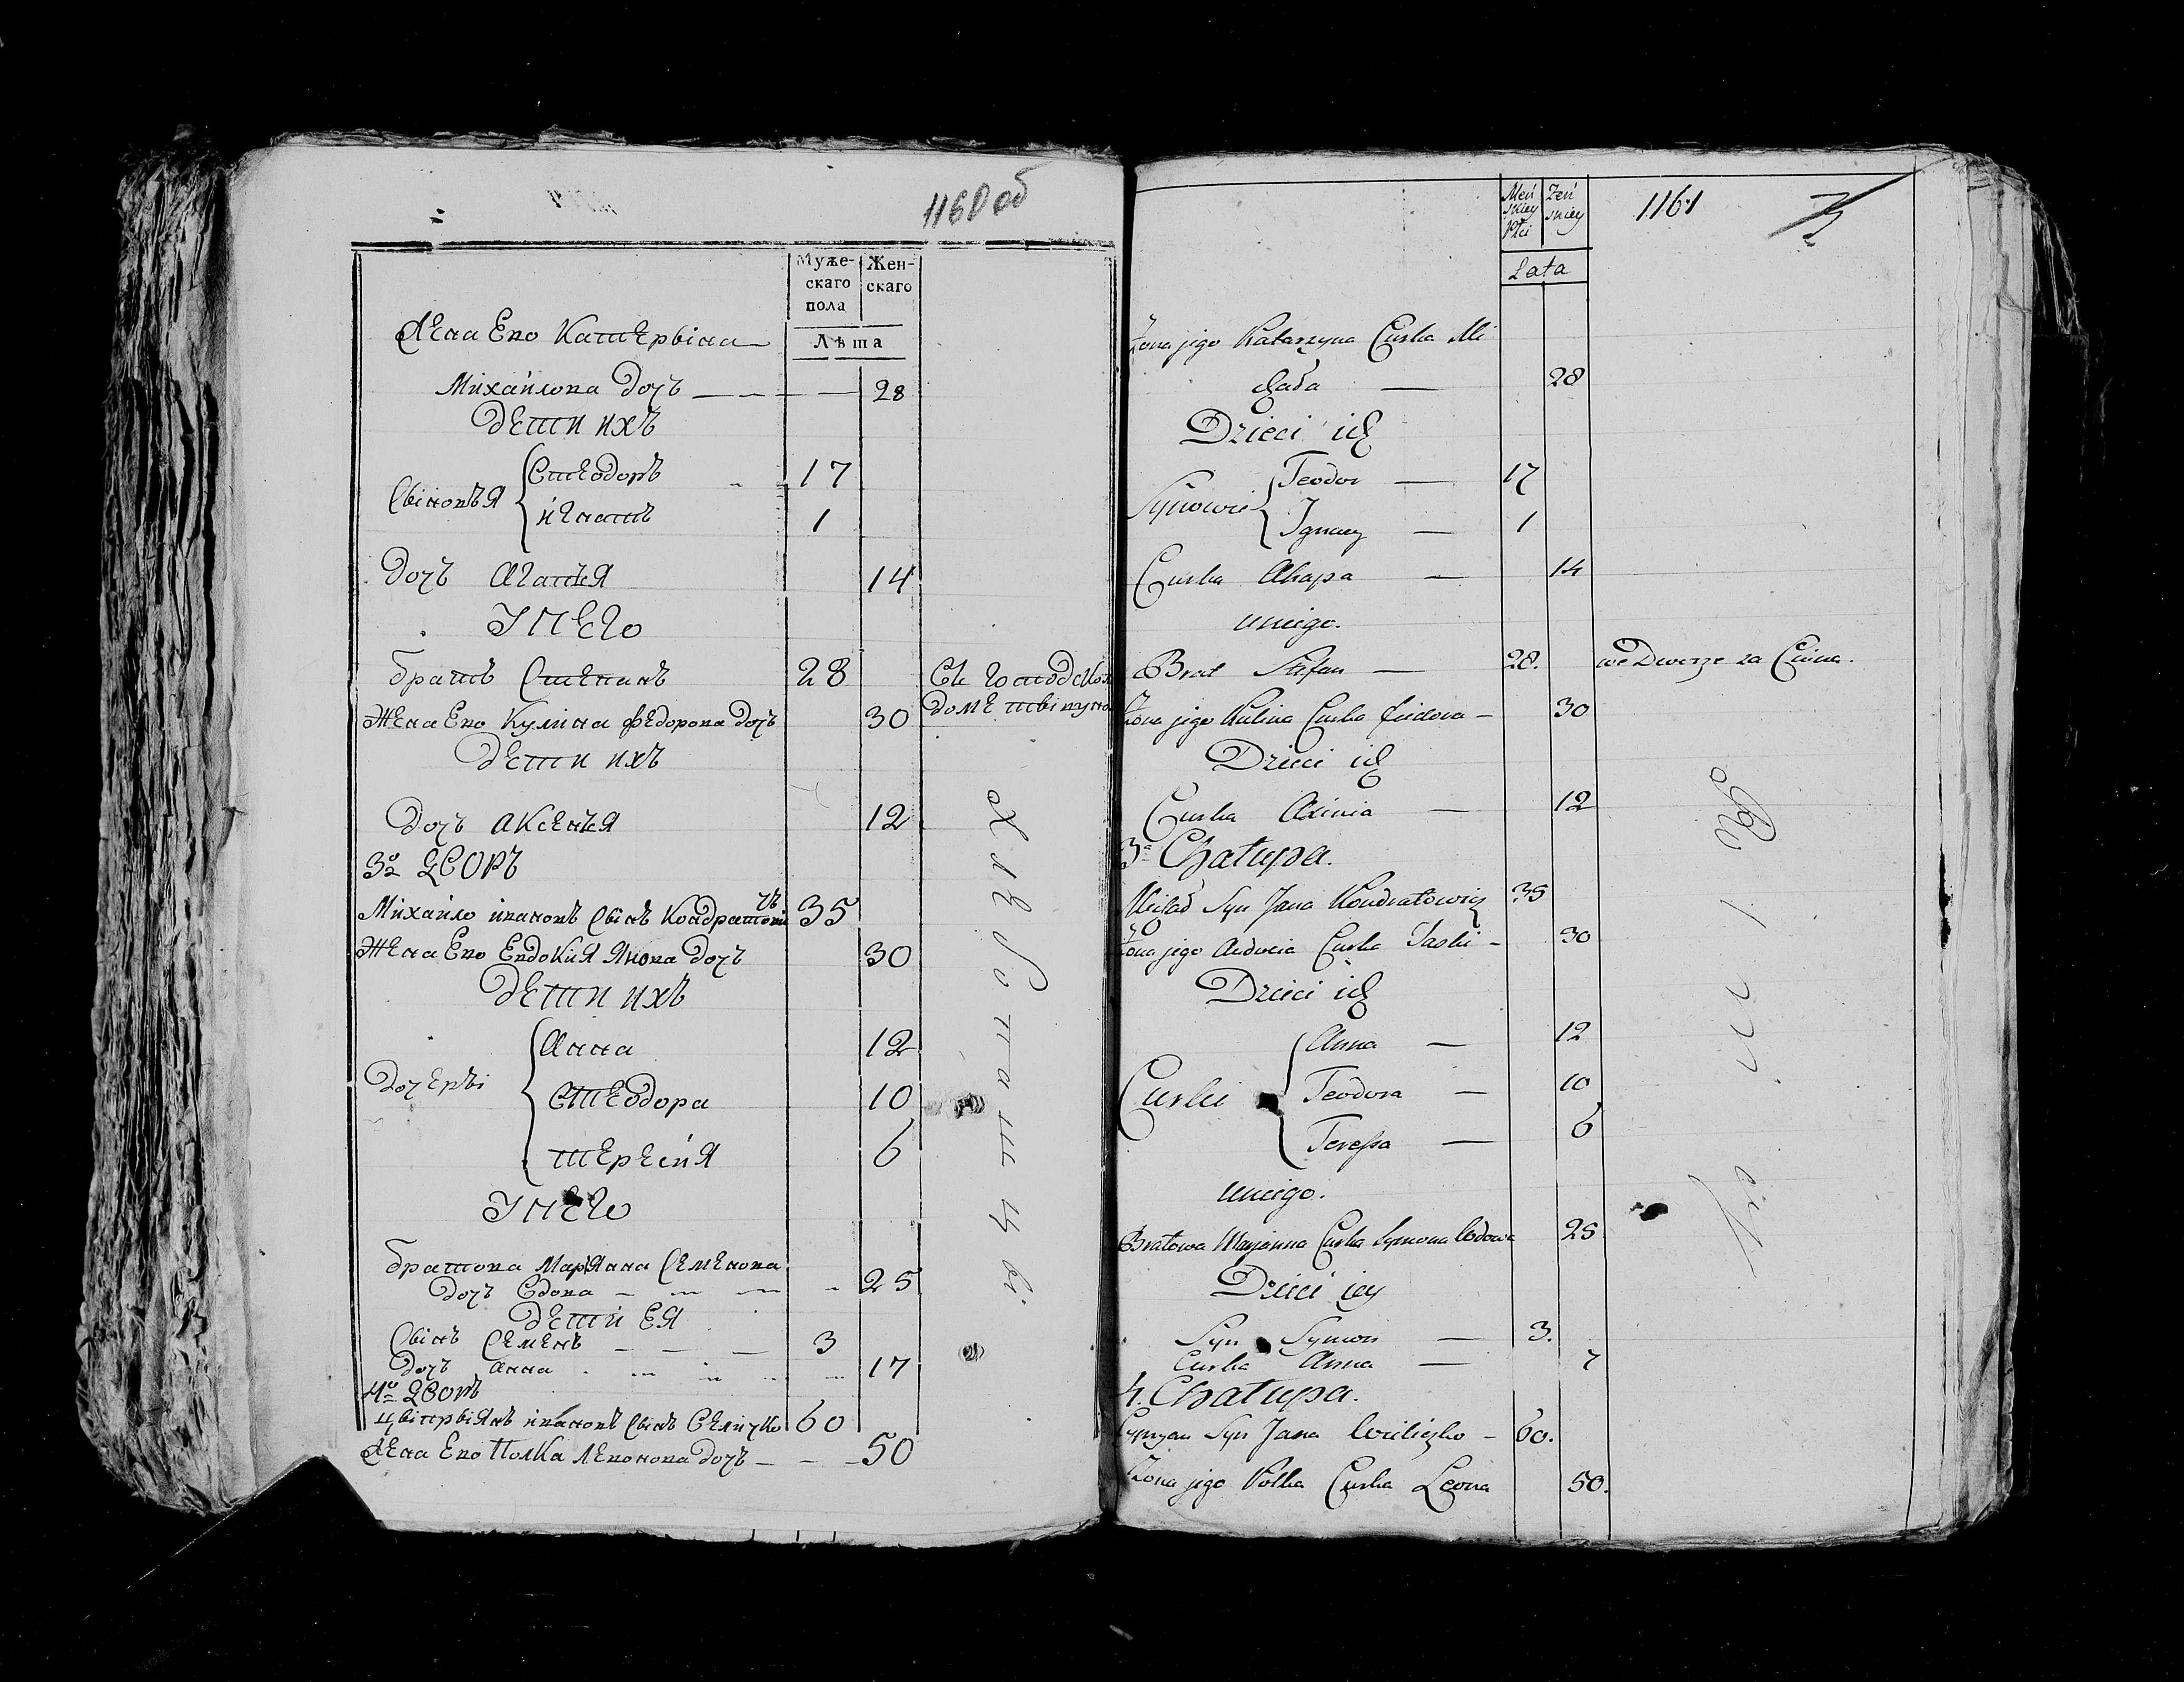 1160 об
Муже-
скаго
пола
Жен-
скаго
Лѣта
Жена Ево Катервіна
Михайлова дочъ — 28
дети ихъ
Свіновъя
Стеодоръ 17
игнатъ 1
дочъ агатъя 14
У него
братъ Степанъ 28
Жена Ево Кулина федорова дочъ 30
дети ихъ
дочъ аксенъя 12
3º дворъ
Михайло ивановъ Свінъ Кондратови
чъ 35
Жена Ево Евдокия Янова дочъ 30
дети ихъ
дочерві
Анна 12
Стеодора 10
тересия 6
У него
братова Марянна Семенова
дочъ вдова — 25
дети ея
Свінъ Семенъ — 3
дочъ анна 17
4º дворъ
ципрвіянъ ивановъ Свінъ Величко 60
Жена Ево Полка Левонова дочъ — 50
въ господском
доме
Męs
skiey
płci
Żeń
skiey
1161
Lata
Żona jego Katarzyna Curka Mi
chała — 28
Dzieci ich
Synowie
Teodor — 17
Ignacy — 1
Curka Ahapa — 14
u niego.
Brat Stefan — 28. we Dworze za Ciwna.
Żona jego Kulina Curka Fiedora — 30
Dzieci ich
Curka Axinia — 12
3. Chałupa.
Michał Syn Jana Kondratowicz 35
Żona jego Audocia Curka Jaśki — 30
Dzieci ich
Curki
Anna — 12
Teodora — 10
Teressa — 6
u niego.
Bratowa Marjanna Curka Symona Wdowa 25
Dzieci jey
Syn Symon — 3.
Curka Anna — 7
4. Chałupa.
Cypryan Syn Jana Wieliczko — 60.
Żona jego Połka Curka Leona 50.